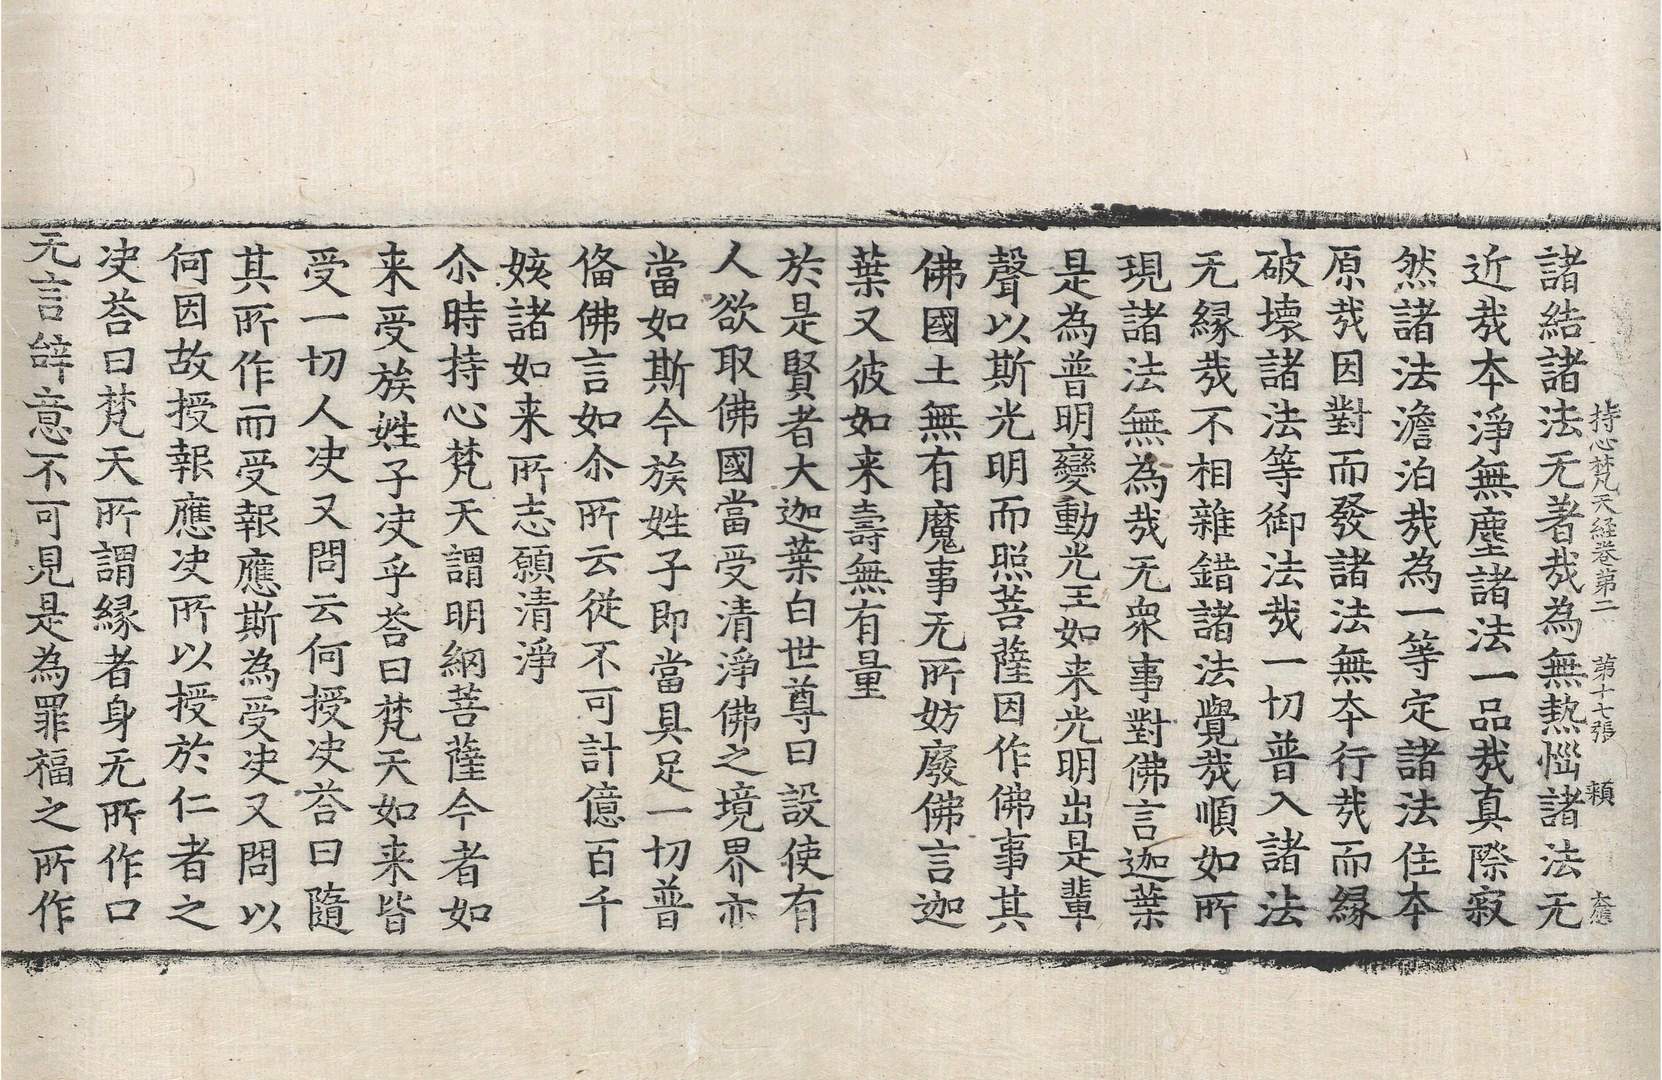 持心梵天経卷第二 第十七張 頼
諸結諸法无著哉為無熱惱諸法无
近哉本淨無塵諸法一品哉真際寂
然諸法澹泊哉為一等定諸法住本
原哉因對而發諸法無本行哉而縁
破壞諸法等御法哉一切普入諸法
无縁哉不相雜錯諸法覺哉順如所
現諸法無為哉无衆事對佛言迦葉
是為普明變動光王如来光明出是輩
聲以斯光明而照菩薩因作佛事其
佛國土無有魔事无所妨廢佛言迦
葉又彼如来壽無有量
於是賢者大迦葉白世尊曰設使有
人欲取佛國當受清淨佛之境界亦
當如斯今族姓子即當具足一切普
俻佛言如尒所云從不可計億百千
姟諸如来所志願清淨
尒時持心梵天謂明網菩薩今者如
来受族姓子决乎荅曰梵天如来皆
受一切人决又問云何授决荅曰隨
其所作而受報應斯為受决又問以
何因故授報應决所以授於仁者之
决荅曰梵天所謂縁者身无所作口
无言辝意不可見是為罪福之所作